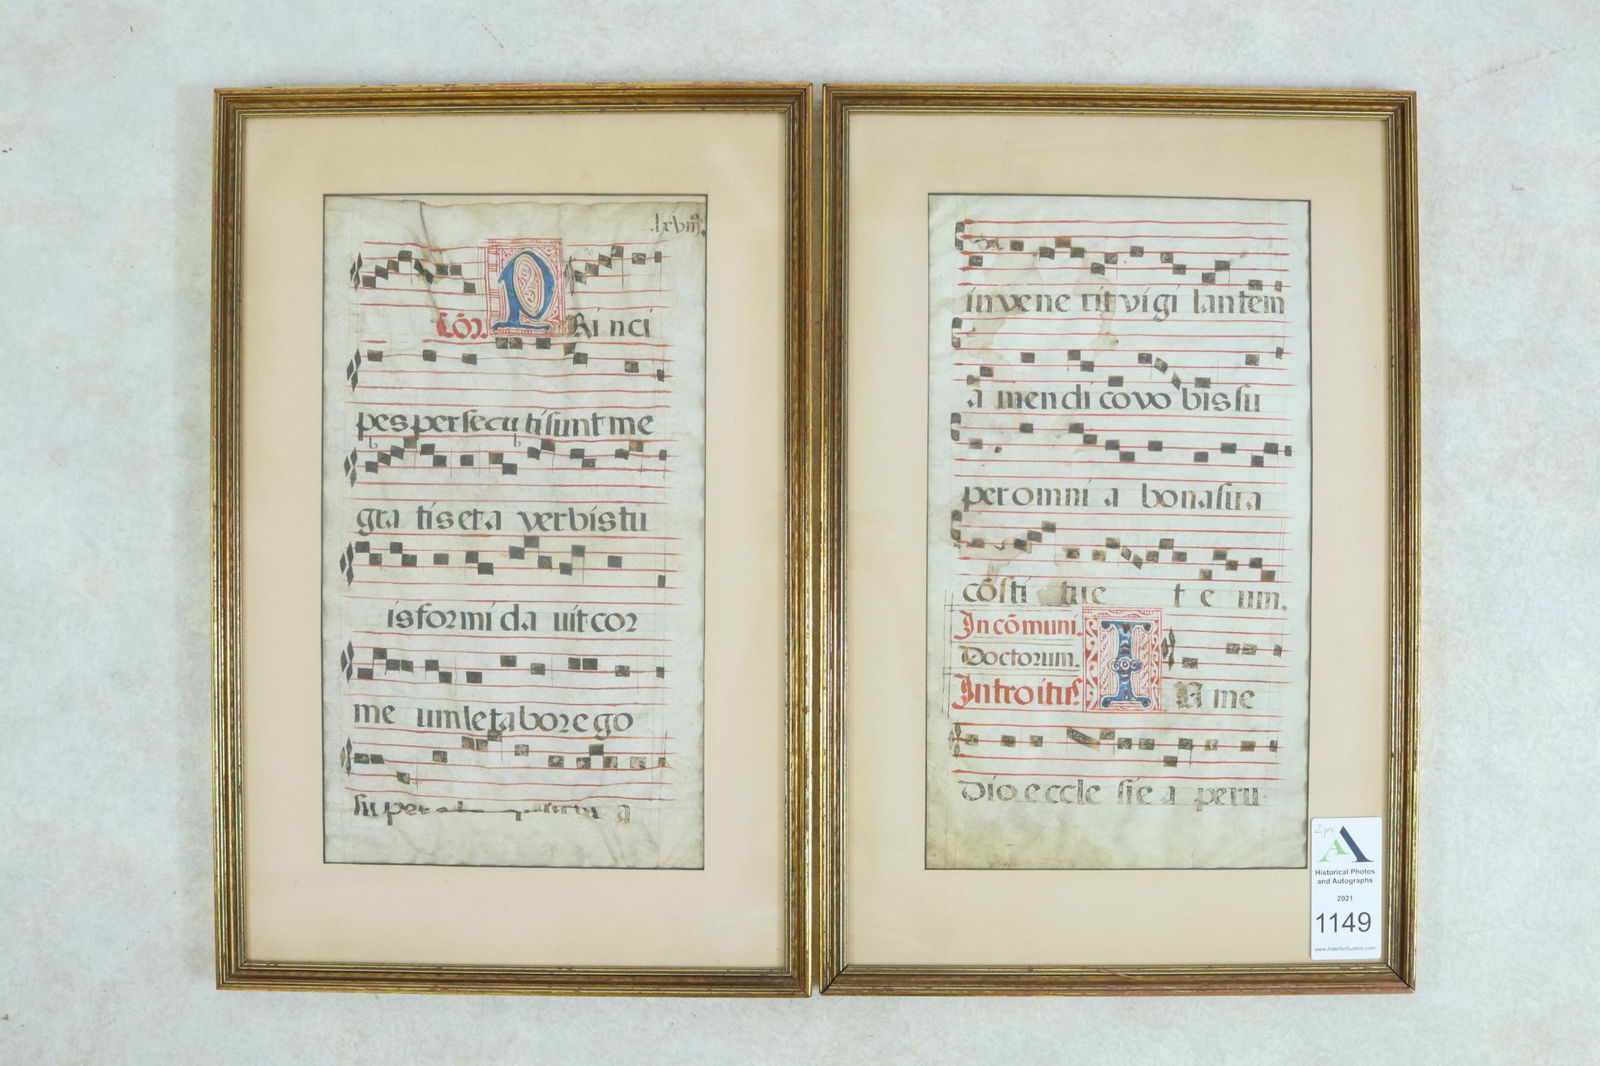 .lxviijº.
Cōr. PRi nci
pes perſecu ti ſunt me
gra tis et a verbis tu
is formi da uit cor
me um letabor ego
ſu per a
in vene rit vi gi lan tem
a men di co vo bis ſu
per omni a bona ſua
cōſti tue t e um.
In cōmuni.
Doctorum.
Introitus. IN me
Dio eccle ſie a peru
2 pcs
A
Historical Photos
and Autographs
2021
1149
www.AlderferAuction.com